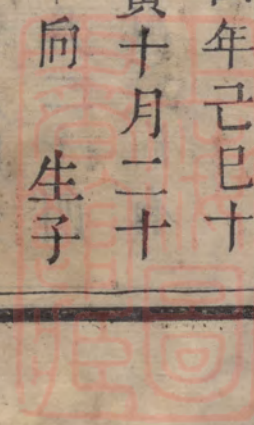 年己巳十
十月二十
向 生子